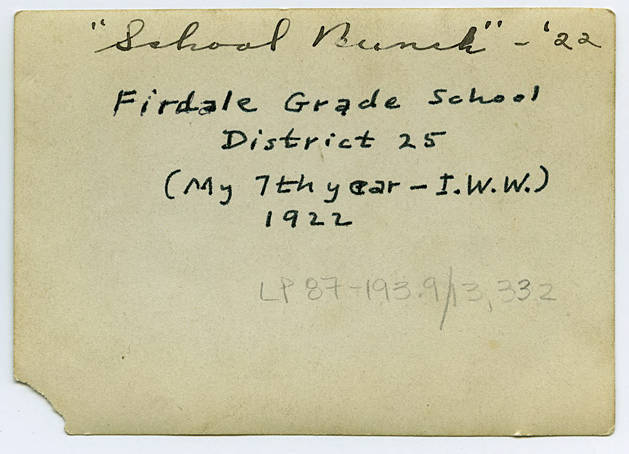 "School Bunch" - '22
Firdale Grade School
District 25
(My 7th year - I.W.W.)
1922
LP 87-193.9/13,332